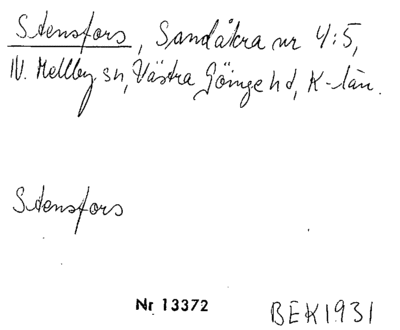 Stensfors, Sandåkra nr 4:5,
N. Mellby sn, Västra Göinge hd, K-län.
Stensfors
Nr 13372 BEK1931